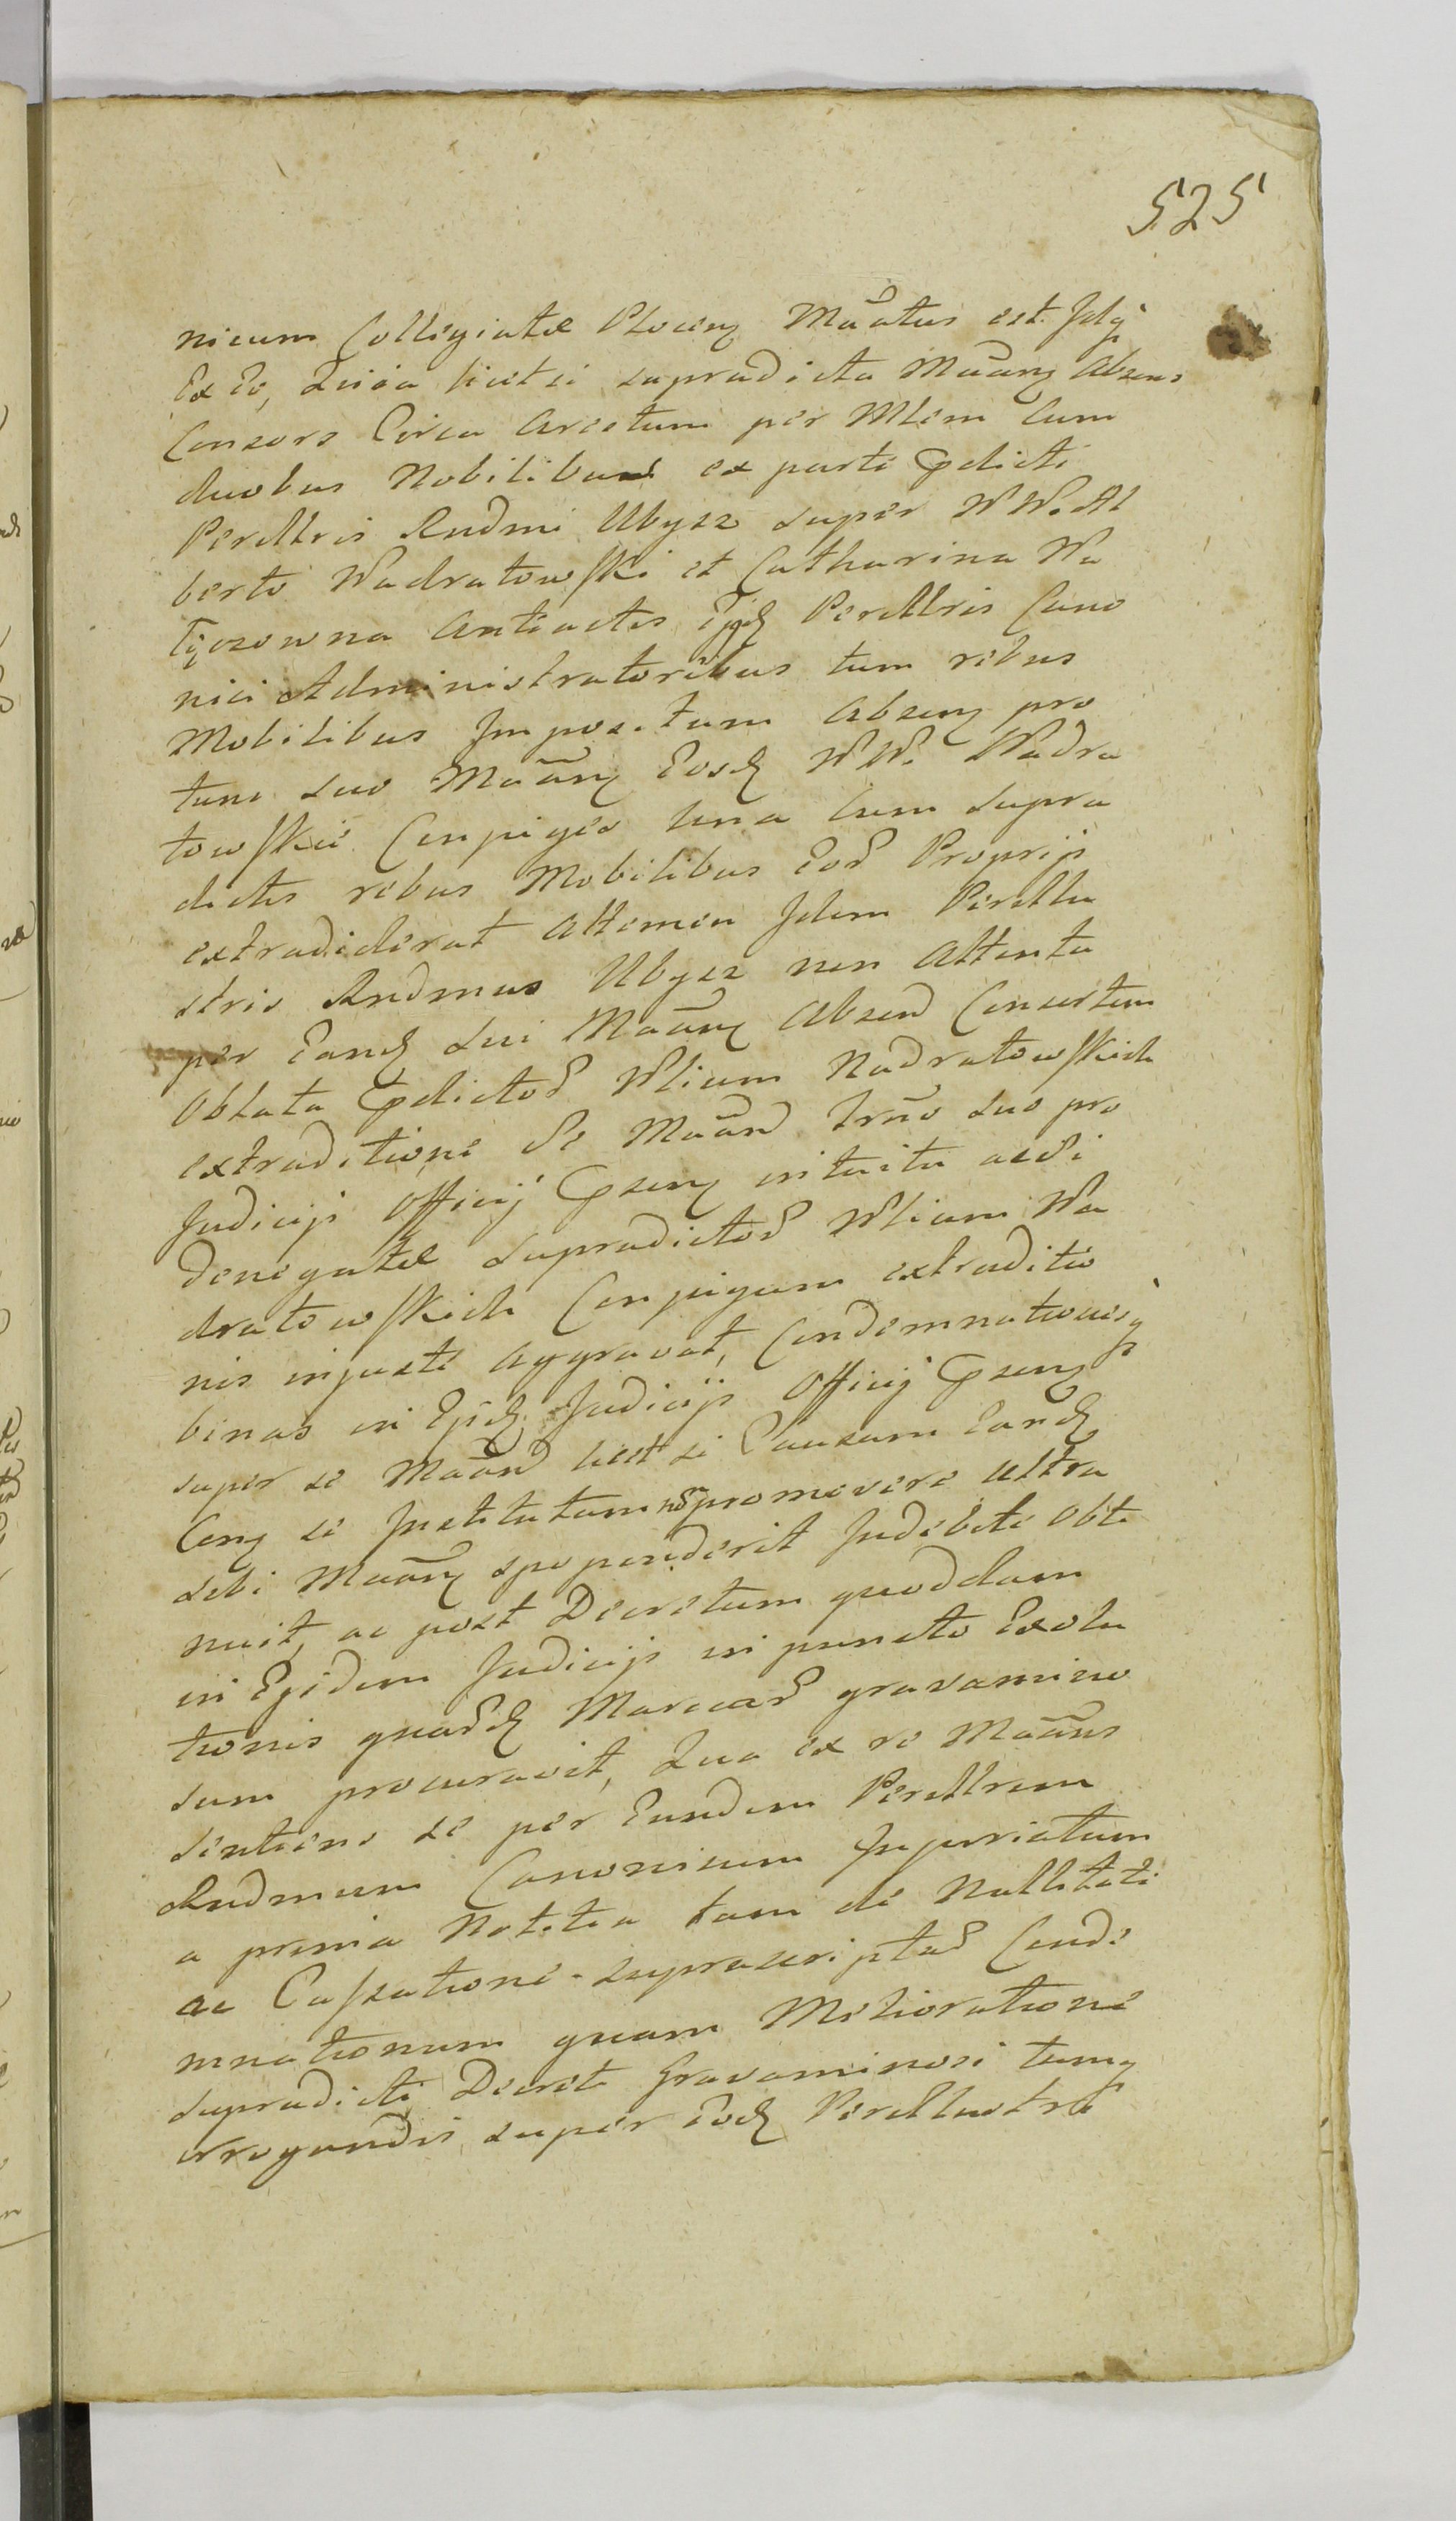 525
nicum Collegiatæ Plocenȝ Mãatus est. Idq̃
Ex Eo, Quia licet si supradicta Mãanȝ Absens
Consors Circa Arestum per Mlem Cum
duobus Nobilibus ex parte Pdicti
Perillris Rndmi Ubysz super WW. Al
berto Wadratowski et Catharina Wa
tijczowna Antiactis Ejȝ Perillris Cano
nici Administratoribus tum rebus
Mobilibus Impositum Absenȝ pro
tunc suo Mãanȝ Eosȝ WW. Wadra
towskie Conjuges una cum supra
dictis rebus Mobilibus Eoȝ Proprijs
extradiderat Attamen Idem Perillu
stris Rndmus Ubysz non Attenta
per Eanȝ sui Mãanȝ Absen Consortem
Oblata Pdictoȝ Wlium Nadratowskich
extraditione se Mãan Trno suo pro
Judicijs Officij Psenȝ intuitu acsi
denegatæ supradictoȝ Wlium Wa
dratowskich Conjugum extraditio
nis injuste aggravat, Condemnationesq̃
binas in Ejsȝ Judicijs Officij Psenȝ
super se Mãan licet si Causam Eanȝ
Conȝ se Institutam nõ promovere ultra
sibi Mãanȝ spoponderit Indebite Obti
nuit, ac post Decretum quoddam
in Ejsdem Judicijs in puncto Exolu
tionis quarȝ Marcaȝ gravamino
sum procuravit, Qua ex re Mãans
sentiens se per Eundem Perillrem
Rndmum Canonicum Injuriatum
a prima Notitia tam de Nullitate
ac Cassatione supra scriptaȝ Conde
mnationum quam Melioratione
supradicti Decreti Gravaminosi tumq̃
irrogandis super Eoȝ Perillustri